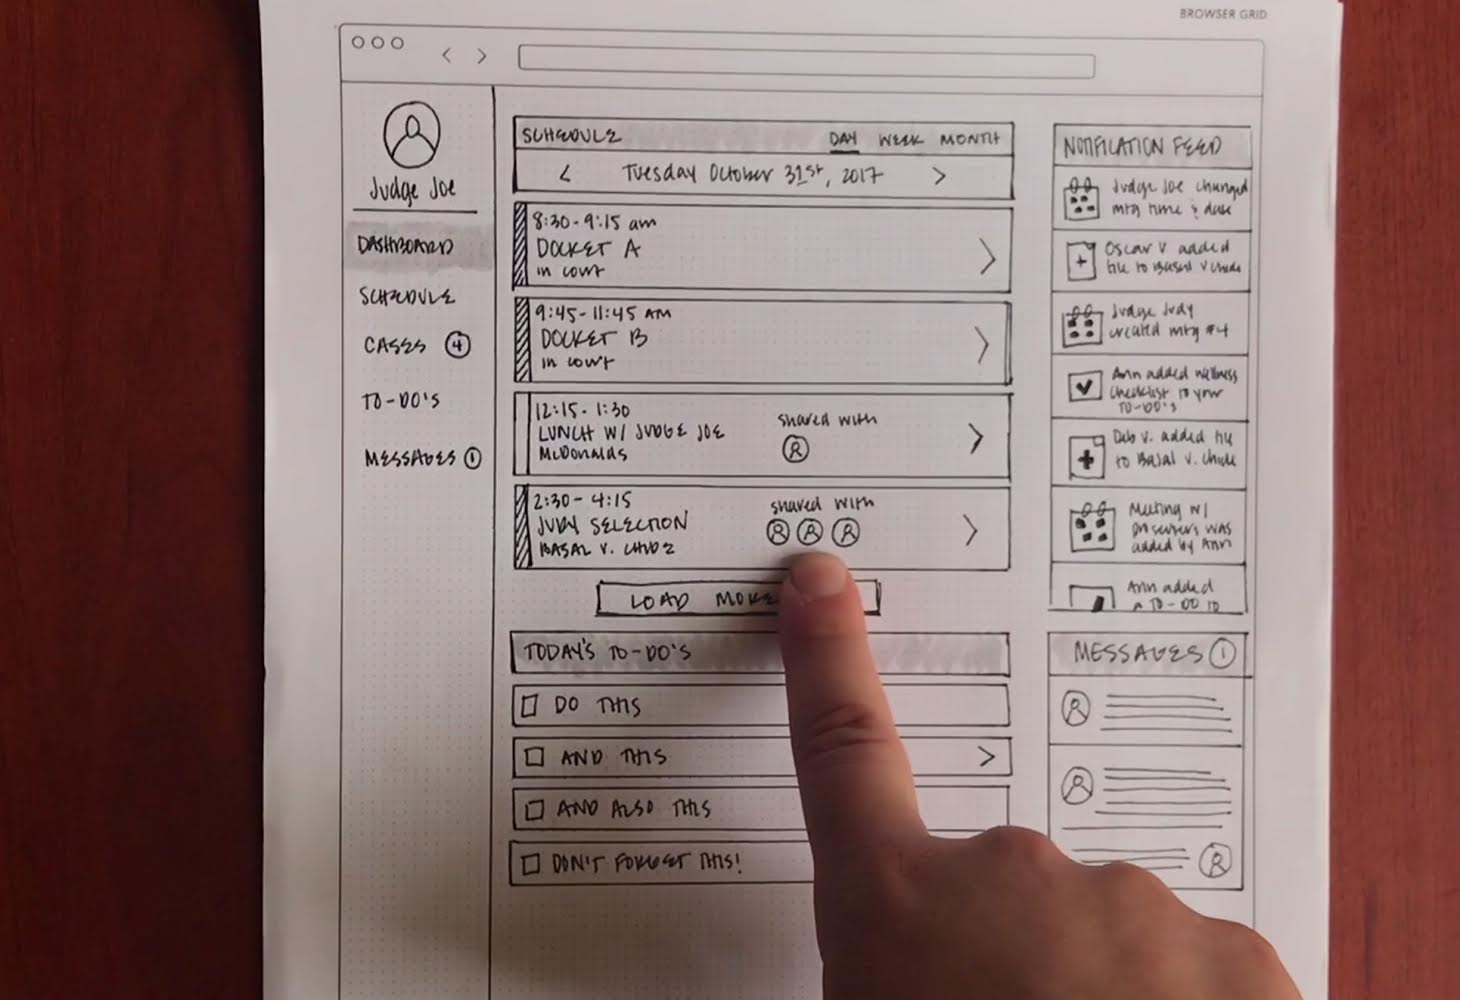 BROWSER GRID
Judge Joe
DASHBOARD
SCHEDULE
CASES 4
TO-DO'S
MESSAGES 1
SCHEDULE DAY WEEK MONTH
< Tuesday October 31st, 2017 >
8:30-9:15 am
DOCKET A
in court
9:45-11:45 AM
DOCKET B
in court
12:15-1:30
LUNCH W/ JUDGE JOE
McDonalds
shared with
2:30-4:15
JURY SELECTION
BASAL V. CHIDE
shared with
LOAD MORE
TODAY'S TO-DO'S
DO THIS
AND THIS
AND ALSO THIS
DON'T FORGET THIS!
NOTIFICATION FEED
Judge Joe changed
mtg time & date
Oscar V. added
file to Basal v Chide
Judge Judy
created mtg #4
Ann added wellness
checklist to your
TO-DO'S
Deb V. added file
to Basal v. Chide
Meeting w/
was
added by Ann
Ann added
a TO-DO to
MESSAGES 1